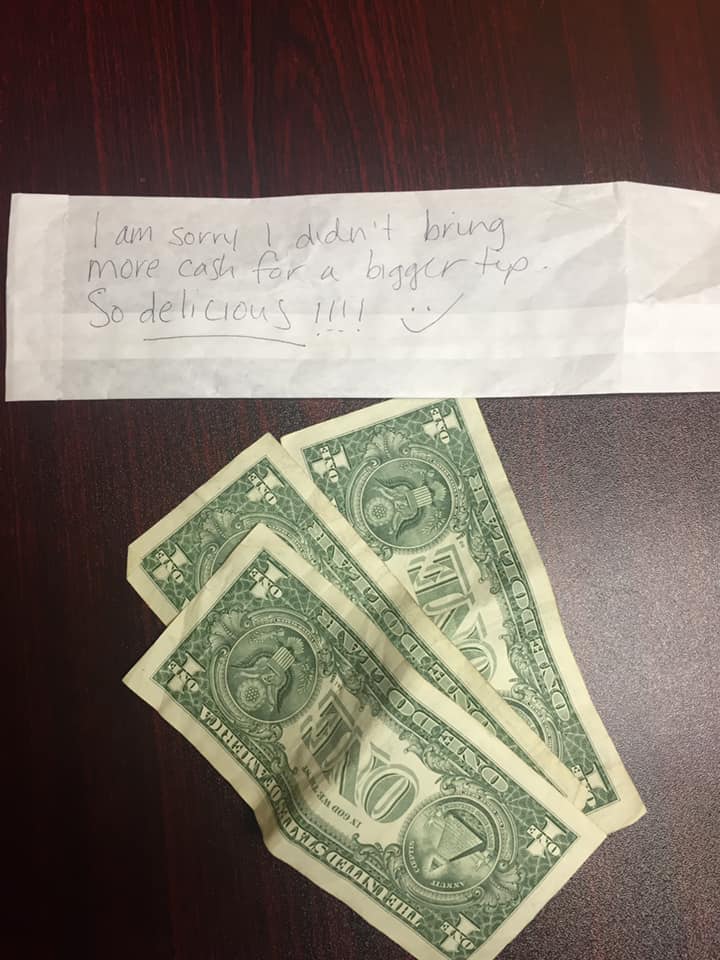 I am sorry I didn't bring
more cash for a bigger tip.
So delicious !!!! :)
ONE
ONE
ONE
ONE DOLLAR
ONE
ONE
ONE DOLLAR
THE UNITED STATES OF AMERICA
ONE
ONE
IN GOD WE TRUST
ONE
ANNUIT COEPTIS
ONE DOLLAR
ONE
ONE